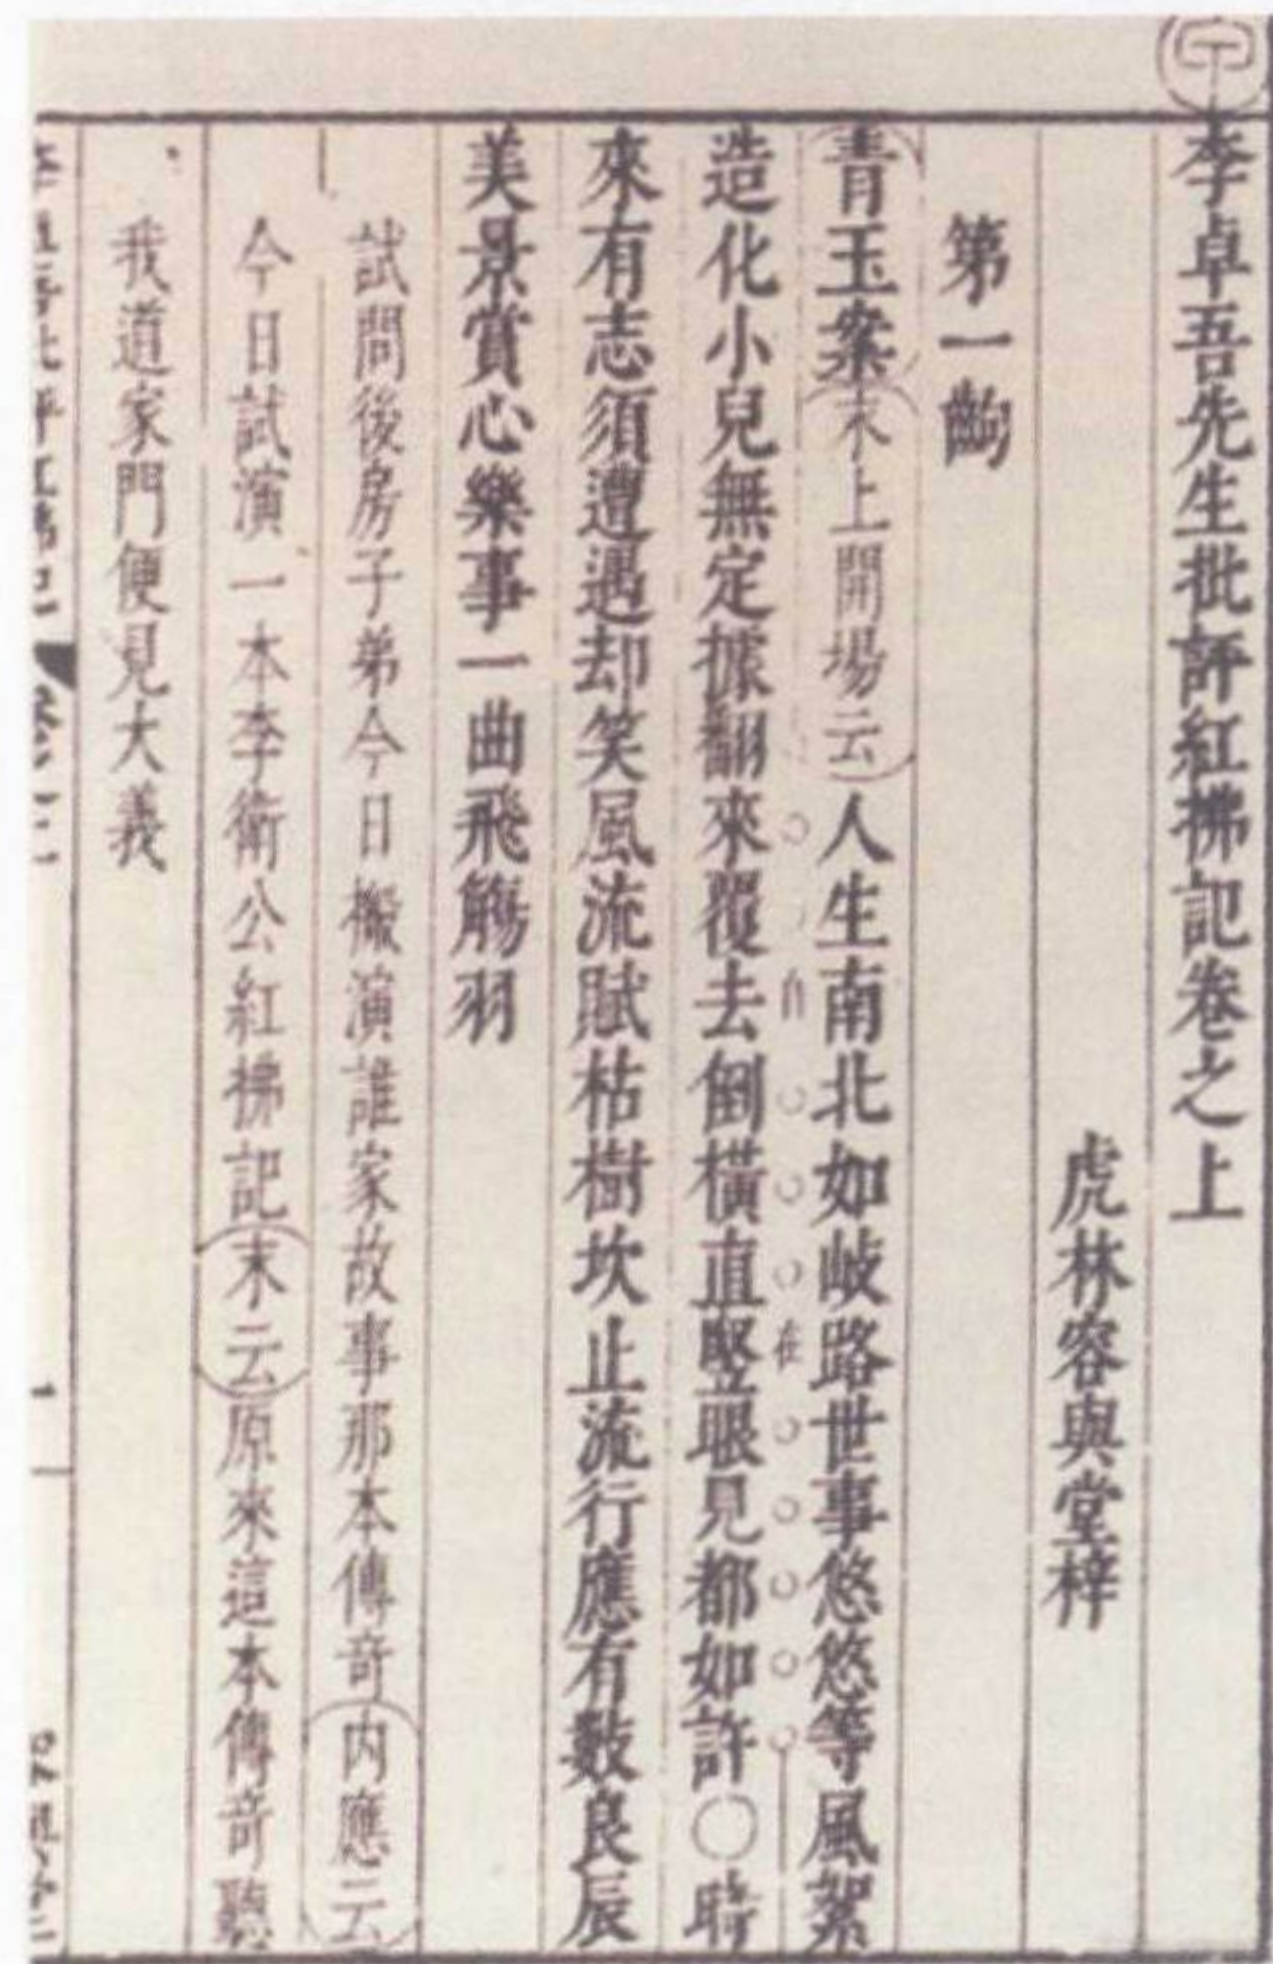 李卓吾先生批評紅拂記卷之上
虎林容與堂梓
第一齣
青玉案(末上開場云)人生南北如岐路世事悠悠等風絮
造化小兒無定據翻來覆去倒橫直竪眼見都如許○時
來有志須遭遇却笑風流賦枯樹坎止流行應有數良辰
美景賞心樂事一曲飛觴羽
試問後房子弟今日搬演誰家故事那本傳奇(内應云)
今日試演一本李衛公紅拂記(末云)原來這本傳奇聽
我道家門便見大義